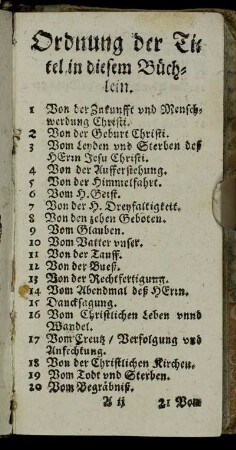 Ordnung der Ti-
tel in diesem Büch-
lein.
1 Von der Zukunfft vnd Mensch-
werdung Christi.
2 Von der Geburt Christi.
3 Vom Leyden vnd Sterben deß
HErrn Jesu Christi.
4 Von der Aufferstehung.
5 Von der Himmelfahrt.
6 Vom H. Geist.
7 Von der H. Dreyfaltigkeit.
8 Von den zehen Geboten.
9 Vom Glauben.
10 Vom Vatter vnser.
11 Von der Tauff.
12 Von der Bueß.
13 Von der Rechtfertigung.
14 Vom Abendmal deß HErrn.
15 Dancksagung.
16 Vom Christlichen Leben vnnd
Wandel.
17 Vom Creutz / Verfolgung vnd
Anfechtung.
18 Von der Christlichen Kirchen.
19 Vom Todt vnd Sterben.
20 Vom Begräbniß.
A ij 21 Vom